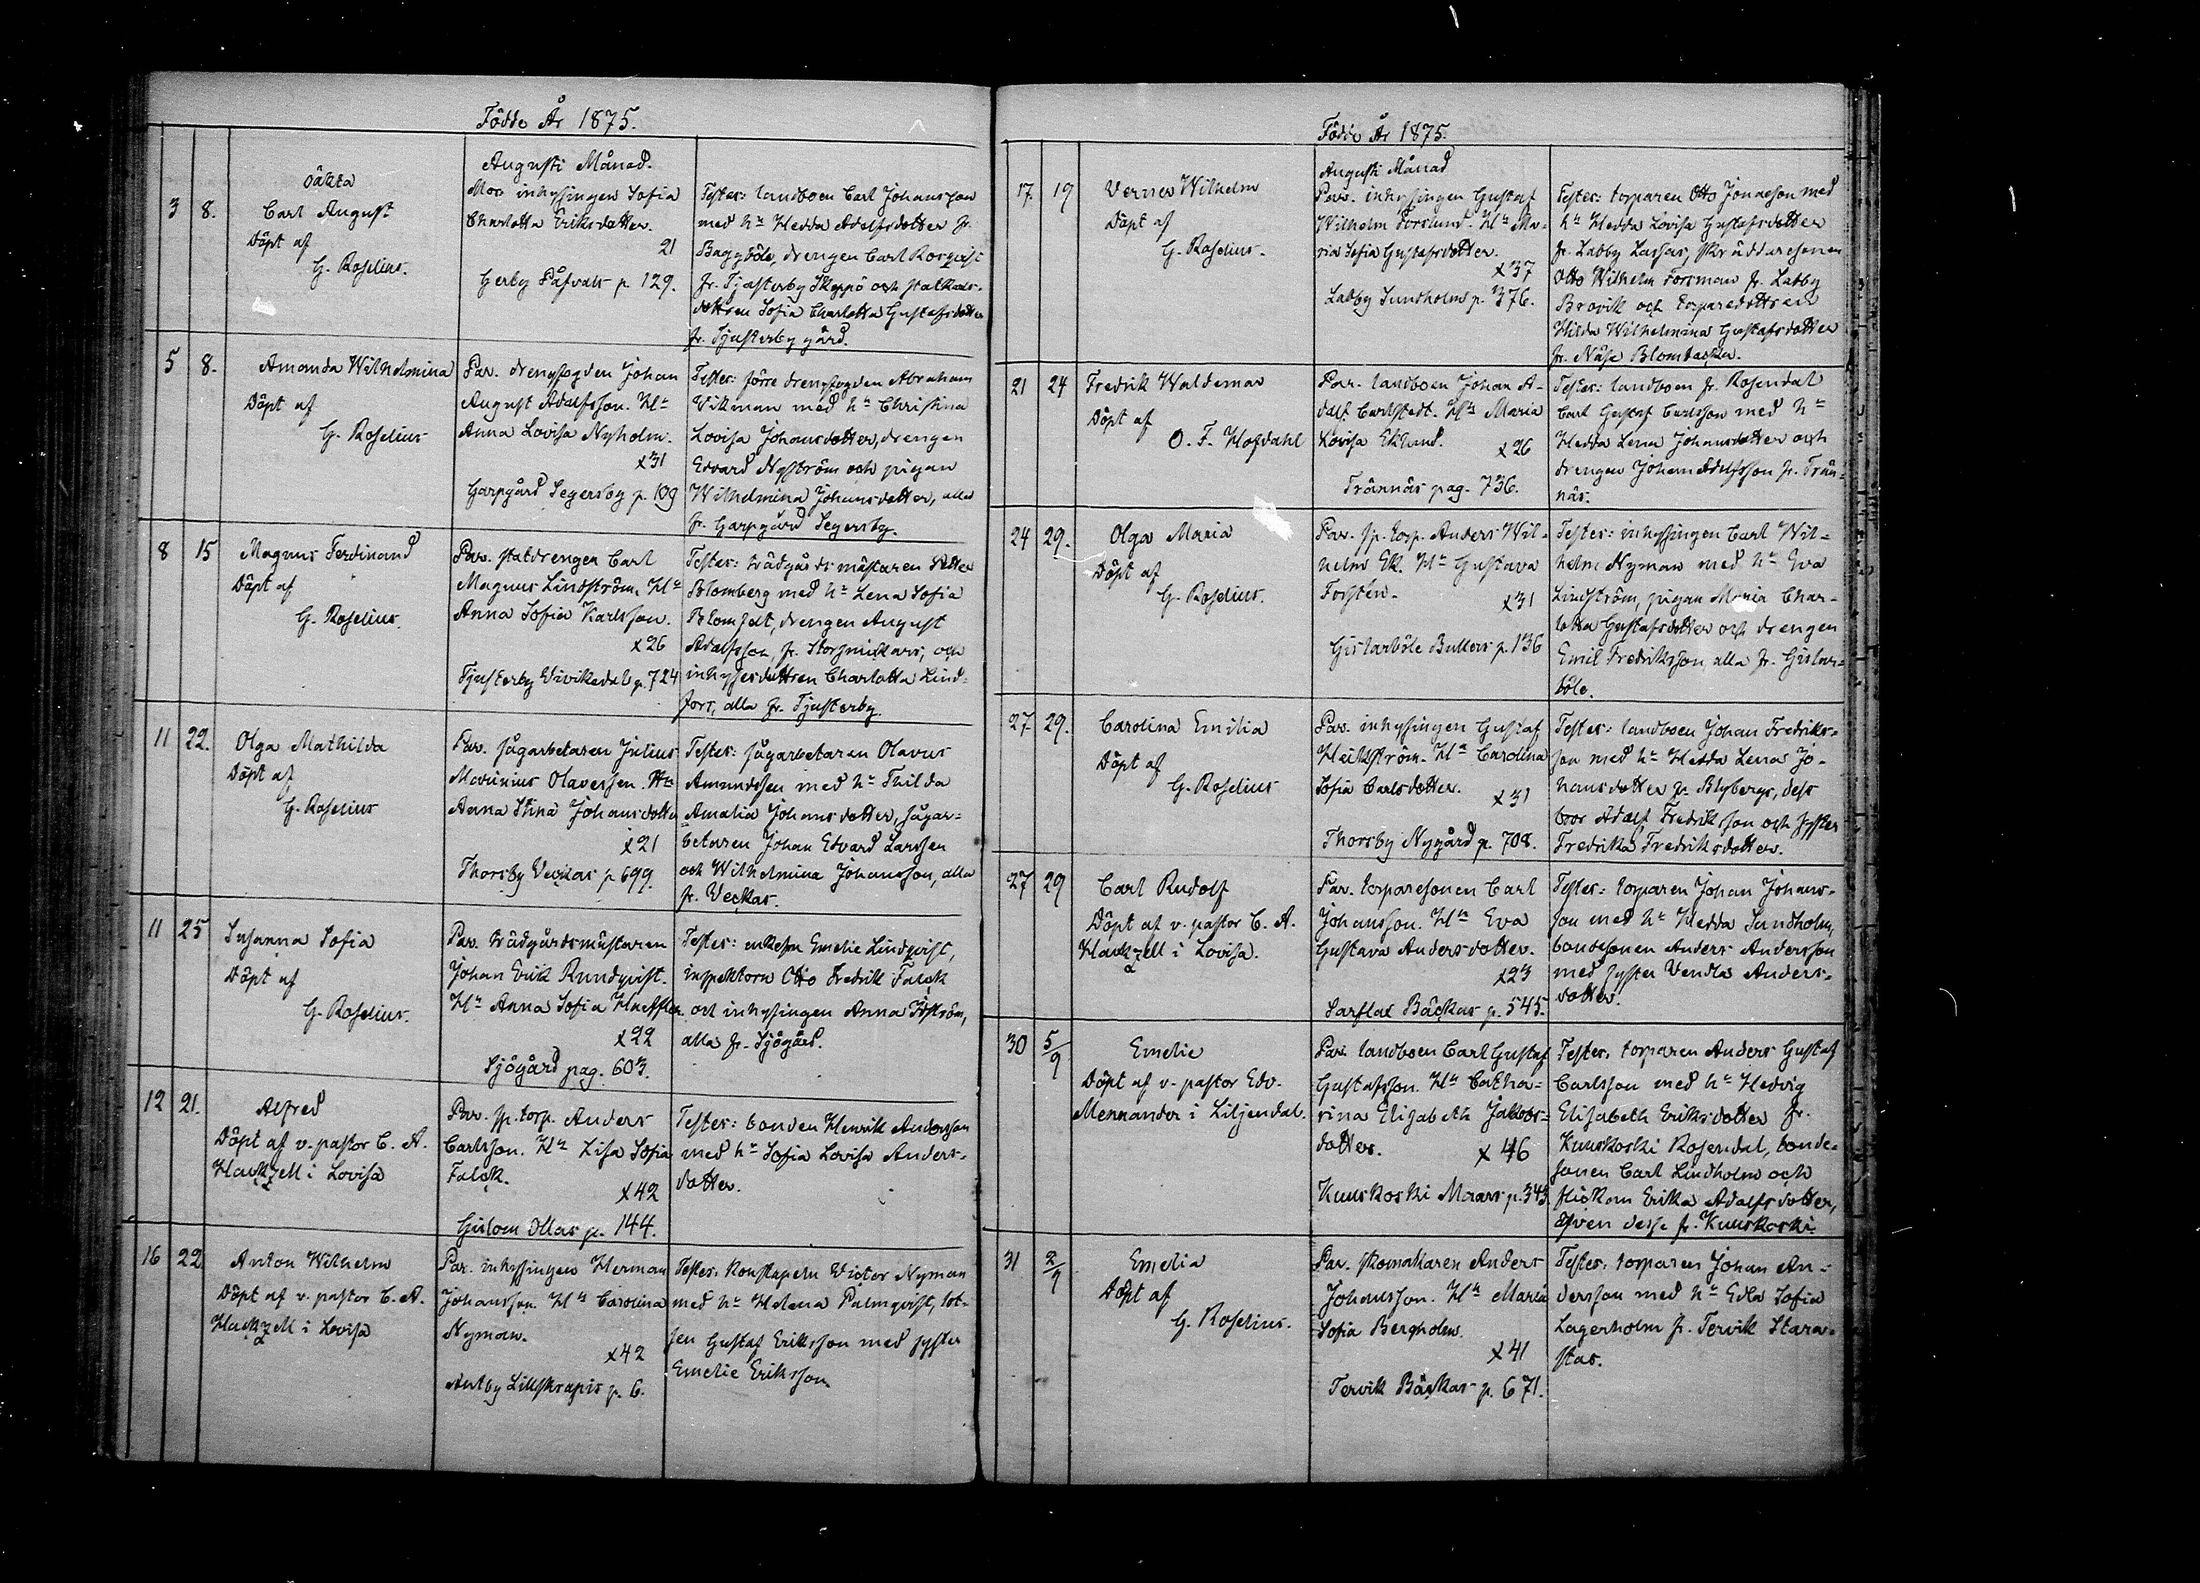 Födde År 1875.
Augusti Månad.
3 8.
oäkta
Carl August
Döpt af
G. Roselius.
Mor. inhysingen Sofia
Charlotta Eriksdotter.
21
Gerby Påfvals p. 129.
Testes: landboen Carl Johansson
med hn Hedda Adolfsdotter fr.
Baggböle, drengen Carl Rosqvist
fr. Tjusterby Skeppö och
dottren Sofia Charlotta Gustafsdotter
fr. Tjusterby gård.
5 8.
Amanda Wilhelmina
Döpt af
G. Roselius
Par. drengfogden Johan
August Adolfsson. Hn
Anna Lovisa Nyholm.
x31
Garpgård Segersby p. 109
Testes: förre drengfogden Abraham
Vikman med hn Christina
Lovisa Johansdotter, drengen
Edvard Nyström och pigan
Wilhelmina Johansdotter, alla
fr. Garpgård Segersby.
8 15
Magnus Ferdinand
Döpt af
G. Roselius.
Par. statdrengen Carl
Magnus Lindström. Hn
Anna Sofia Karlsson.
x26
Tjusterby Vivikedal p. 724
Testes: trädgårdsmästaren Petter
Blomberg med hn Lena Sofia
Blomfelt, drengen August
Adolfsson, fr. Storsmickars, och
inhysesdottren Charlotta Lind-
fors, alla fr. Tjusterby.
11 22.
Olga Mathilda
Döpt af
G. Roselius
Par. sågarbetaren Julius
Marinius Olavessen. Hn
Anna Stina Johansdotter
x21
Thorsby Veckas p. 699.
Testes: sågarbetaren Olavus
Amundssen med hn Thilda
Amalia Johansdotter, sågar-
betaren Johan Edvard Larssen
och Wilhelmina Johansson, alla
fr. Veckas.
11 25
Susanna Sofia
Döpt af
G. Roselius.
Par. trädgårdsmästaren
Johan Erik Rundqvist.
Hn Anna Sofia
x22
Sjögård pag. 603.
Testes: enkefru Emelie Lindqvist,
inspektorn Otto Fredrik Falck
och inhysingen Anna
alla fr. Sjögård.
12 21.
Alfred
Döpt af v. pastor C. A.
Hackzell i Lovisa
Par. sp. torp. Anders
Carlsson. Hn Lisa Sofia
Falck.
x42
Gislom Ollas p. 144.
Testes: bonden Henrik Andersson
med hn Sofia Lovisa Anders-
dotter.
16 22
Anton Wilhelm
Döpt af v. pastor C. A.
Hackzell i Lovisa
Par. inhysingen Herman
Johansson. Hn Carolina
Nyman.
x42
Antby Lillskrapis p. 6.
Testes: konstapeln Victor Nyman
med hn Helena Palmqvist, lot-
sen Gustaf Eriksson med syster
Emelie Eriksson.
Födde År 1875.
Augusti Månad
17. 19
Verner Wilhelm
Döpt af
G. Roselius.
Par. inhysingen Gustaf
Wilhelm Forslund. Hn Ma-
ria Sofia Gustafsdotter.
x37
Labby Sundholms p. 376.
Testes: torparen Otto Jonasson med
hn Hedda Lovisa Gustafsdotter
fr. Labby Lassas, skräddaresonen
Otto Wilhelm Forsman fr. Labby
Brovik och torparedottren
Hilda Wilhelmina Gustafsdotter
fr. Näse Blombacka.
21 24
Fredrik Waldemar
Döpt af
O. F. Hofdahl
Par. landboen Johan A-
dolf Carlstedt. Hn Maria
Lovisa Eklund.
x26
Trännäs pag. 736.
Testes: landboen fr. Rosendal
Carl Gustaf Carlsson med hn
Hedda Lena Johansdotter och
drengen Johan Adolfsson fr. Trän-
näs.
24 29.
Olga Maria
Döpt af
G. Roselius.
Par. sp. torp. Anders Wil-
helm Ek. Hn Gustava
Forstén.
x31
Gislarböle Bullers p. 136
Testes: inhysingen Carl Wil-
helm Nyman med hn Eva
Lindström, pigan Maria Char-
lotta Gustafsdotter och drengen
Emil Fredriksson, alla fr. Gislar-
böle.
27. 29.
Carolina Emilia
Döpt af
G. Roselius
Par. inhysingen Gustaf
Heikström. Hn Carolina
Sofia Carlsdotter.
x31
Thorsby Nygård p. 708.
Testes: landboen Johan Fredriks-
son med hn Hedda Lena Jo-
hansdotter fr. Blybergs, dess
bror Adolf Fredriksson och syster
Fredrika Fredriksdotter.
27 29
Carl Rudolf
Döpt af v. pastor C. A.
Hackzell i Lovisa.
Par. torparesonen Carl
Johansson. Hn Eva
Gustava Andersdotter.
x23
Sarflax Bäckas p. 545.
Testes: torparen Johan Johans-
son med hn Hedda Sundholm,
bondesonen Anders Andersson
med syster Vendla Anders-
dotter.
30 5/9
Emelie
Döpt af v. pastor Edv.
Mennander i Liljendal.
Par. landboen Carl Gustaf
Gustafsson. Hn Catha-
rina Elisabeth Jakobs-
dotter.
x46
Kuuskoski Maars p. 343.
Testes: torparen Anders Gustaf
Carlsson med hn Hedvig
Elisabeth Eriksdotter fr.
Kuuskoski Rosendal, bonde-
sonen Carl Lindholm och
flickan Erika Adolfsdotter,
äfven desse fr. Kuuskoski.
31 2/9
Emelia
Döpt af
G. Roselius.
Par. skomakaren Anders
Johansson. Hn Maria
Sofia Bergholm.
x41
Tervik Bäckas p. 671.
Testes: torparen Johan An-
dersson med hn Edla Sofia
Lagerholm fr. Tervik Stara-
stas.